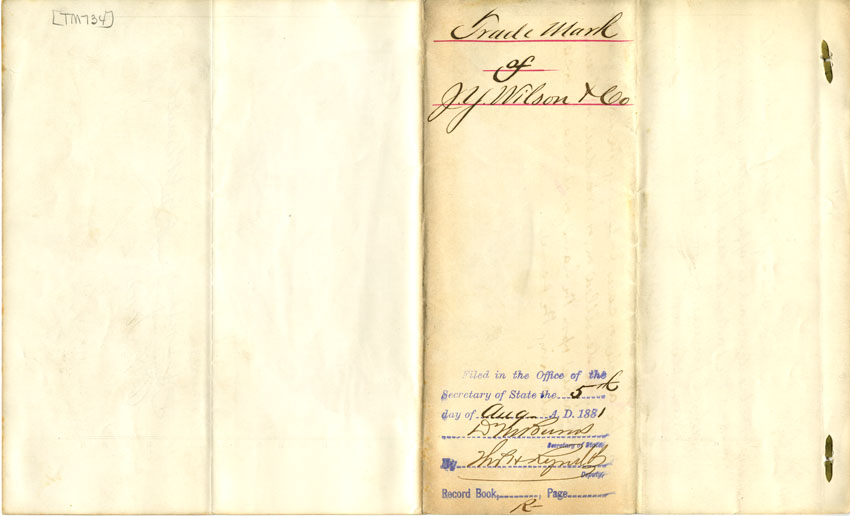 [TM734]
Trade Mark
of
J.Y. Wilson & Co
Filed in the Office of the
Secretary of State the 5th
day of Aug A.D. 1881
D M Burns
Secretary of State
By
Deputy
Record Book, , Page
R